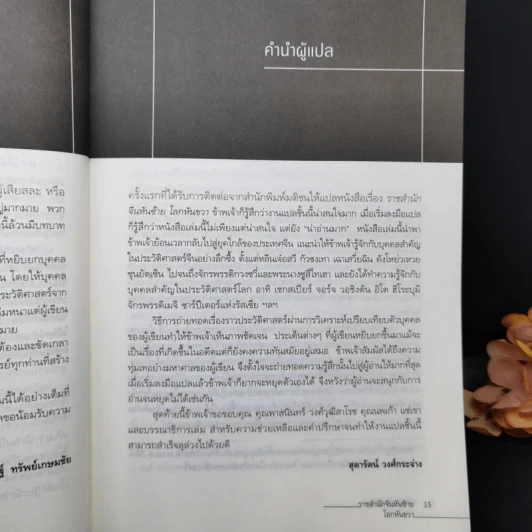 ผู้เสียสละ หรือ
ยู่มากมาย พวก
นี้ล้วนมีบทบาท
ที่หยิบยกบุคคล
น โดยให้บุคคล
ระวัติศาสตร์จาก
มาย
ต้องและขัดเกลา
รย์ทุกท่านที่สร้าง
นี้ได้อย่างเต็มที่
ขอน้อมรับความ
ทรัพย์เกษมชัย
คำนำผู้แปล
ครั้งแรกที่ได้รับการติดต่อจากสำนักพิมพ์มติชนให้แปลหนังสือเรื่อง ราชสำนัก
จีนหันซ้าย โลกหันขวา ข้าพเจ้าก็รู้สึกว่างานแปลชิ้นนี้น่าสนใจมาก เมื่อเริ่มลงมือแปล
ก็รู้สึกว่าหนังสือเล่มนี้ไม่เพียงแต่น่าสนใจ แต่ยัง “น่าอ่านมาก” หนังสือเล่มนี้นำพา
ข้าพเจ้าย้อนเวลากลับไปสู่ยุคใกล้ของประเทศจีน แนะนำให้ข้าพเจ้ารู้จักกับบุคคลสำคัญ
ในประวัติศาสตร์จีนอย่างลึกซึ้ง ตั้งแต่หลินเจ๋อสวี กัวซงเทา เฉาเสวี่ยฉิน คังโหย่วเหวย
ซุนยัตเซ็น ไปจนถึงจักรพรรดิกวงซวี่และพระนางซูสีไทเฮา และยังได้ทำความรู้จักกับ
บุคคลสำคัญในประวัติศาสตร์โลก อาทิ เชกสเปียร์ จอร์จ วอชิงตัน อิโต ฮิโรบุมิ
จักรพรรดิเมจิ ซาร์ปีเตอร์แห่งรัสเซีย ฯลฯ
วิธีการถ่ายทอดเรื่องราวประวัติศาสตร์ผ่านการวิเคราะห์เปรียบเทียบตัวบุคคล
ของผู้เขียนทำให้ข้าพเจ้าเห็นภาพชัดเจน ประเด็นต่างๆ ที่ผู้เขียนหยิบยกขึ้นมาแม้จะ
เป็นเรื่องที่เกิดขึ้นในอดีตแต่ก็ยังคงความทันสมัยอยู่เสมอ ข้าพเจ้าสัมผัสได้ถึงความ
ทุ่มเทอย่างมหาศาลของผู้เขียน จึงตั้งใจจะถ่ายทอดความรู้สึกนั้นไปสู่ผู้อ่านให้มากที่สุด
เมื่อเริ่มลงมือแปลแล้วข้าพเจ้าก็ยากจะหยุดตัวเองได้ จึงหวังว่าผู้อ่านจะสนุกกับการ
อ่านจนหยุดไม่ได้เช่นกัน
สุดท้ายนี้ข้าพเจ้าขอขอบคุณ คุณพาสนินทร์ วงศ์วุฒิสาโรช คุณนพเก้า แซ่เขา
และบรรณาธิการเล่ม สำหรับความช่วยเหลือและคำปรึกษาจนทำให้งานแปลชิ้นนี้
สามารถสำเร็จลุล่วงไปด้วยดี
สุดารัตน์ วงศ์กระจ่าง
ราชสำนักจีนหันซ้าย 15
โลกหันขวา